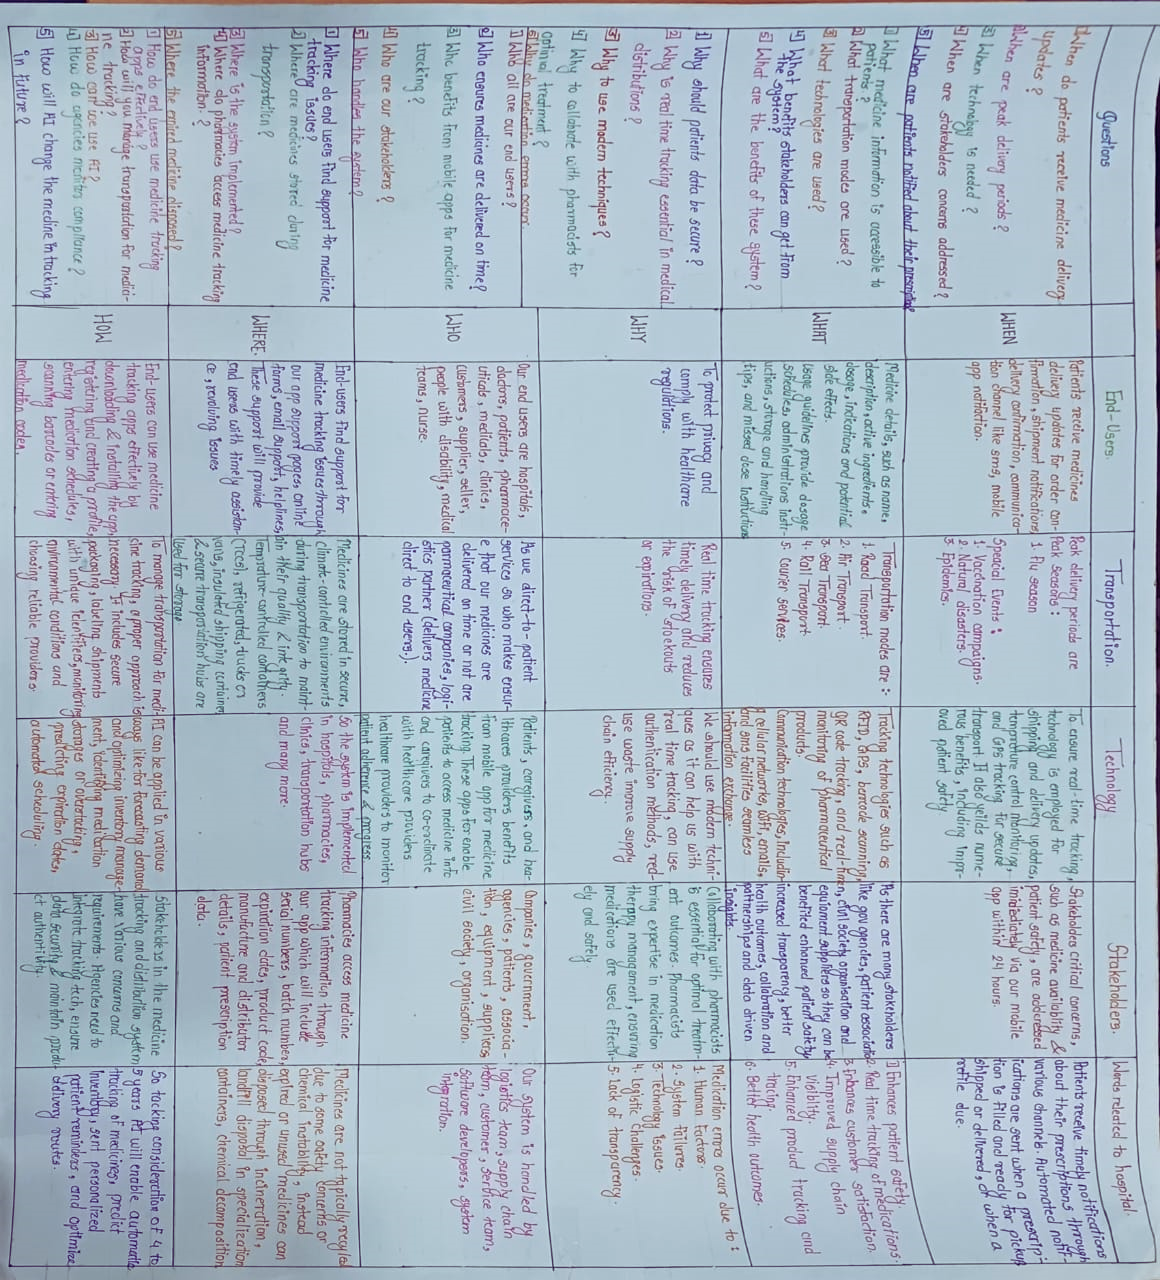 Questions
End-Users.
Transportation.
Technology
Stakeholders.
Words related to hospital.
1) When do patients receive medicine delivery
updates?
2) When are peak delivery periods?
3) When technology is needed?
4) When are stakeholders concerns addressed?
5) When are patients notified about their prescription
WHEN
Patients receive medicines
delivery updates for order con-
firmation, shipment notifications,
delivery confirmation, communica-
tion channel like sms, mobile
app notification.
Peak delivery periods are
Peak Seasons:
1. Flu season
Speacial Events:
1. Vaccination campaigns.
2. Natural disasters.
3. Epidemics.
To ensure real-time tracking,
technology is employed for
shipping and delivery updates,
temperature control monitoring,
and GPS tracking for secure
transport. It also yeilds nume-
rous benefits, including impr-
oved patient safety.
Stakeholders critical concerns,
such as medicine availability &
patient safety, are addressed
immediately via our mobile
app within 24 hours.
Patients receive timely notifications
about their prescriptions through
various channels. Automated notif-
ications are sent when a prescrip-
tion is filled and ready for pickup
shipped or delivered, or when a
refill due.
1) What medicine information is accessible to
patients?
2) What transportation modes are used?
3) What technologies are used?
4) What benefits stakeholders can get from
the system?
5) What are the benefits of these system?
WHAT
Medicine details, such as name,
description, active ingredients.
dosage, indications and potential
side effects.
usage guidelines provide dosage
schedules, administrations instr-
uctions, storage and handling
tips, and missed dose institutions
Transportation modes are:
1. Road Transport.
2. Air Transport.
3. Sea Transport.
4. Rail Transport.
5. Courier services.
Tracking technologies such as
RFID, GPS, barcode scanning,
QR code tracking, and real-time
monitoring of pharmaceutical
products.
Communication technologies, includin-
g cellular networks, wifi, emails,
and sms facilities seamless
information exchange.
As there are many stakeholders
like gov agencies, patient associatio-
n, civil society, organisation and
equipment suppliers so they can be
benefited enhanced patient safety
increased transparency, better
health outcomes, collabration and
partnerships and data driven
insights.
1. Enhances patient safety.
2. Real time tracking of medications.
3. Enhances customer satisfaction.
4. Improved supply chain
visibility.
5. Enhanced product tracking and
tracing.
6. Better health outcomes.
1) Why should patients data be secure?
2) Why is real time tracking essential in medical
distributions?
3) Why to use modern techniques?
4) Why to collabrate with pharmacists for
optimal treatment?
5) Why do medication errors occur
WHY
To protect privacy and
comply with healthcare
regulations.
Real time tracking ensures
timely delivery and reduces
the risk of stockouts
or expirations.
We should use modern techni-
ques as it can help us with
real time tracking, can use
authentication methods, red-
use waste improve supply
chain efficiency.
Collaborating with pharmacists
is essential for optimal treatm-
ent outcomes Pharmacists
bring expertise in medication
therapy management, ensuring
medications are used effectiv-
ely and safely
Medication errors occur due to:
1. Human Factors.
2. System failures.
3. Technology issues.
4. Logistic Challenges.
5. Lack of transparency.
1) Who all are our end users?
2) Who ensures medicines are delivered on time?
3) Who benefits from mobile apps for medicine
tracking?
4) Who are our stakeholders?
5) Who handles the system?
WHO
Our end users are hospitals,
doctors, patients, pharmace-
uticals, medicals, clinics,
customers, supplier, seller,
people with disability, medical
teams, nurse.
As we direct-to-patient
services so who makes ensur-
e that our medicines are
delivered on time or not are
parmaceutical companies, logi-
stics partner (delivers medicine
direct to end users.)
Patients, caregivers, and hea-
lthcare providers benefits
from mobile app for medicine
tracking. These apps for enable
patients to access medicine info
and caregivers to co-ordinate
with healthcare providers
healthcare providers to monitor
patient adherence & progress
Companies, government,
agencies, patients, associa-
tion, equipment, suppliers,
civil society, organisation.
Our system is handled by
logistics team, supply chain
team, customer, service team,
software developers, system
intgration.
1) Where do end users find support for medicine
tracking issues?
2) Where are medicines stored during
transporation?
3) Where is the system implemented?
4) Where do pharmacies access medicine tracking
information?
5) Where the expired medicine disposed?
WHERE.
End-users find support for
medicine tracking issues through
our app support pages, online
forms, email support, helplines,
These support will provide
end users with timely assistan-
ce, revolving issues
Medicines are stored in secure,
climate-controlled environments
during transportation to maint-
ain their quality & intigrity.
Temprature-controlled containers
(TCCs), refrigerated, trucks or
vans, insulated shipping container
& secure transporation hubs are
used for storage
So the system is implemented
in hospitals, pharmacies,
clinics, transportation hubs
and many more.
Pharmacies access medicine
tracking information through
our app which will include
serial numbers, batch number,
expiration dates, product code,
manufacture and distributor
details, patient prescription
data.
Medicines are not typically recycled
due to some safety concerts or
chemical instability, instead
expired or unused medicines can
disposed through incineration,
landfill disposal in specialization
containers, chemical decomposition
1) How do end users use medicine tracking
apps effectively?
2) How will you manage transportation for medici-
ne tracking?
3) How can we use AI?
4) How do agencies monitor compliance?
5) How will AI change the medine in tracking
in future?
HOW
End-users can use medicine
tracking apps effectively by
downloading & installing the app,
registering and creating a profile,
entering medication schedules,
scanning barcodes or entering
medication codes.
To manage transporation for medi-
cine tracking, a proper approach is
necessary. It includes secure
packaging, labelling shipments
with unique identifiers, monitoring
environmental conditions and
choosing reliable providers.
AI can be applied in various
ways like for forecasting demand
and optimizing inventory manage-
ment, identifying medication
shortages or overstocking,
predicting expiration dates,
automated scheduling.
Stakeholders in the medicine
tracking and distribution system
have various concerns and
requirements. Agencies need to
integrate tracking tech, ensure
data security & maintain produ-
ct authenticity.
So taking consideration of 4 to
5 years AI will enable automatic
tracking of medicines, predict
inventory, sent personalized
patient reminders, and optimize
delivery routes.